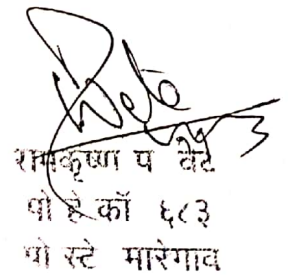 रामकृष्ण प वेटे
पो हे कॉ ६८३
पो स्टे मारेगाव